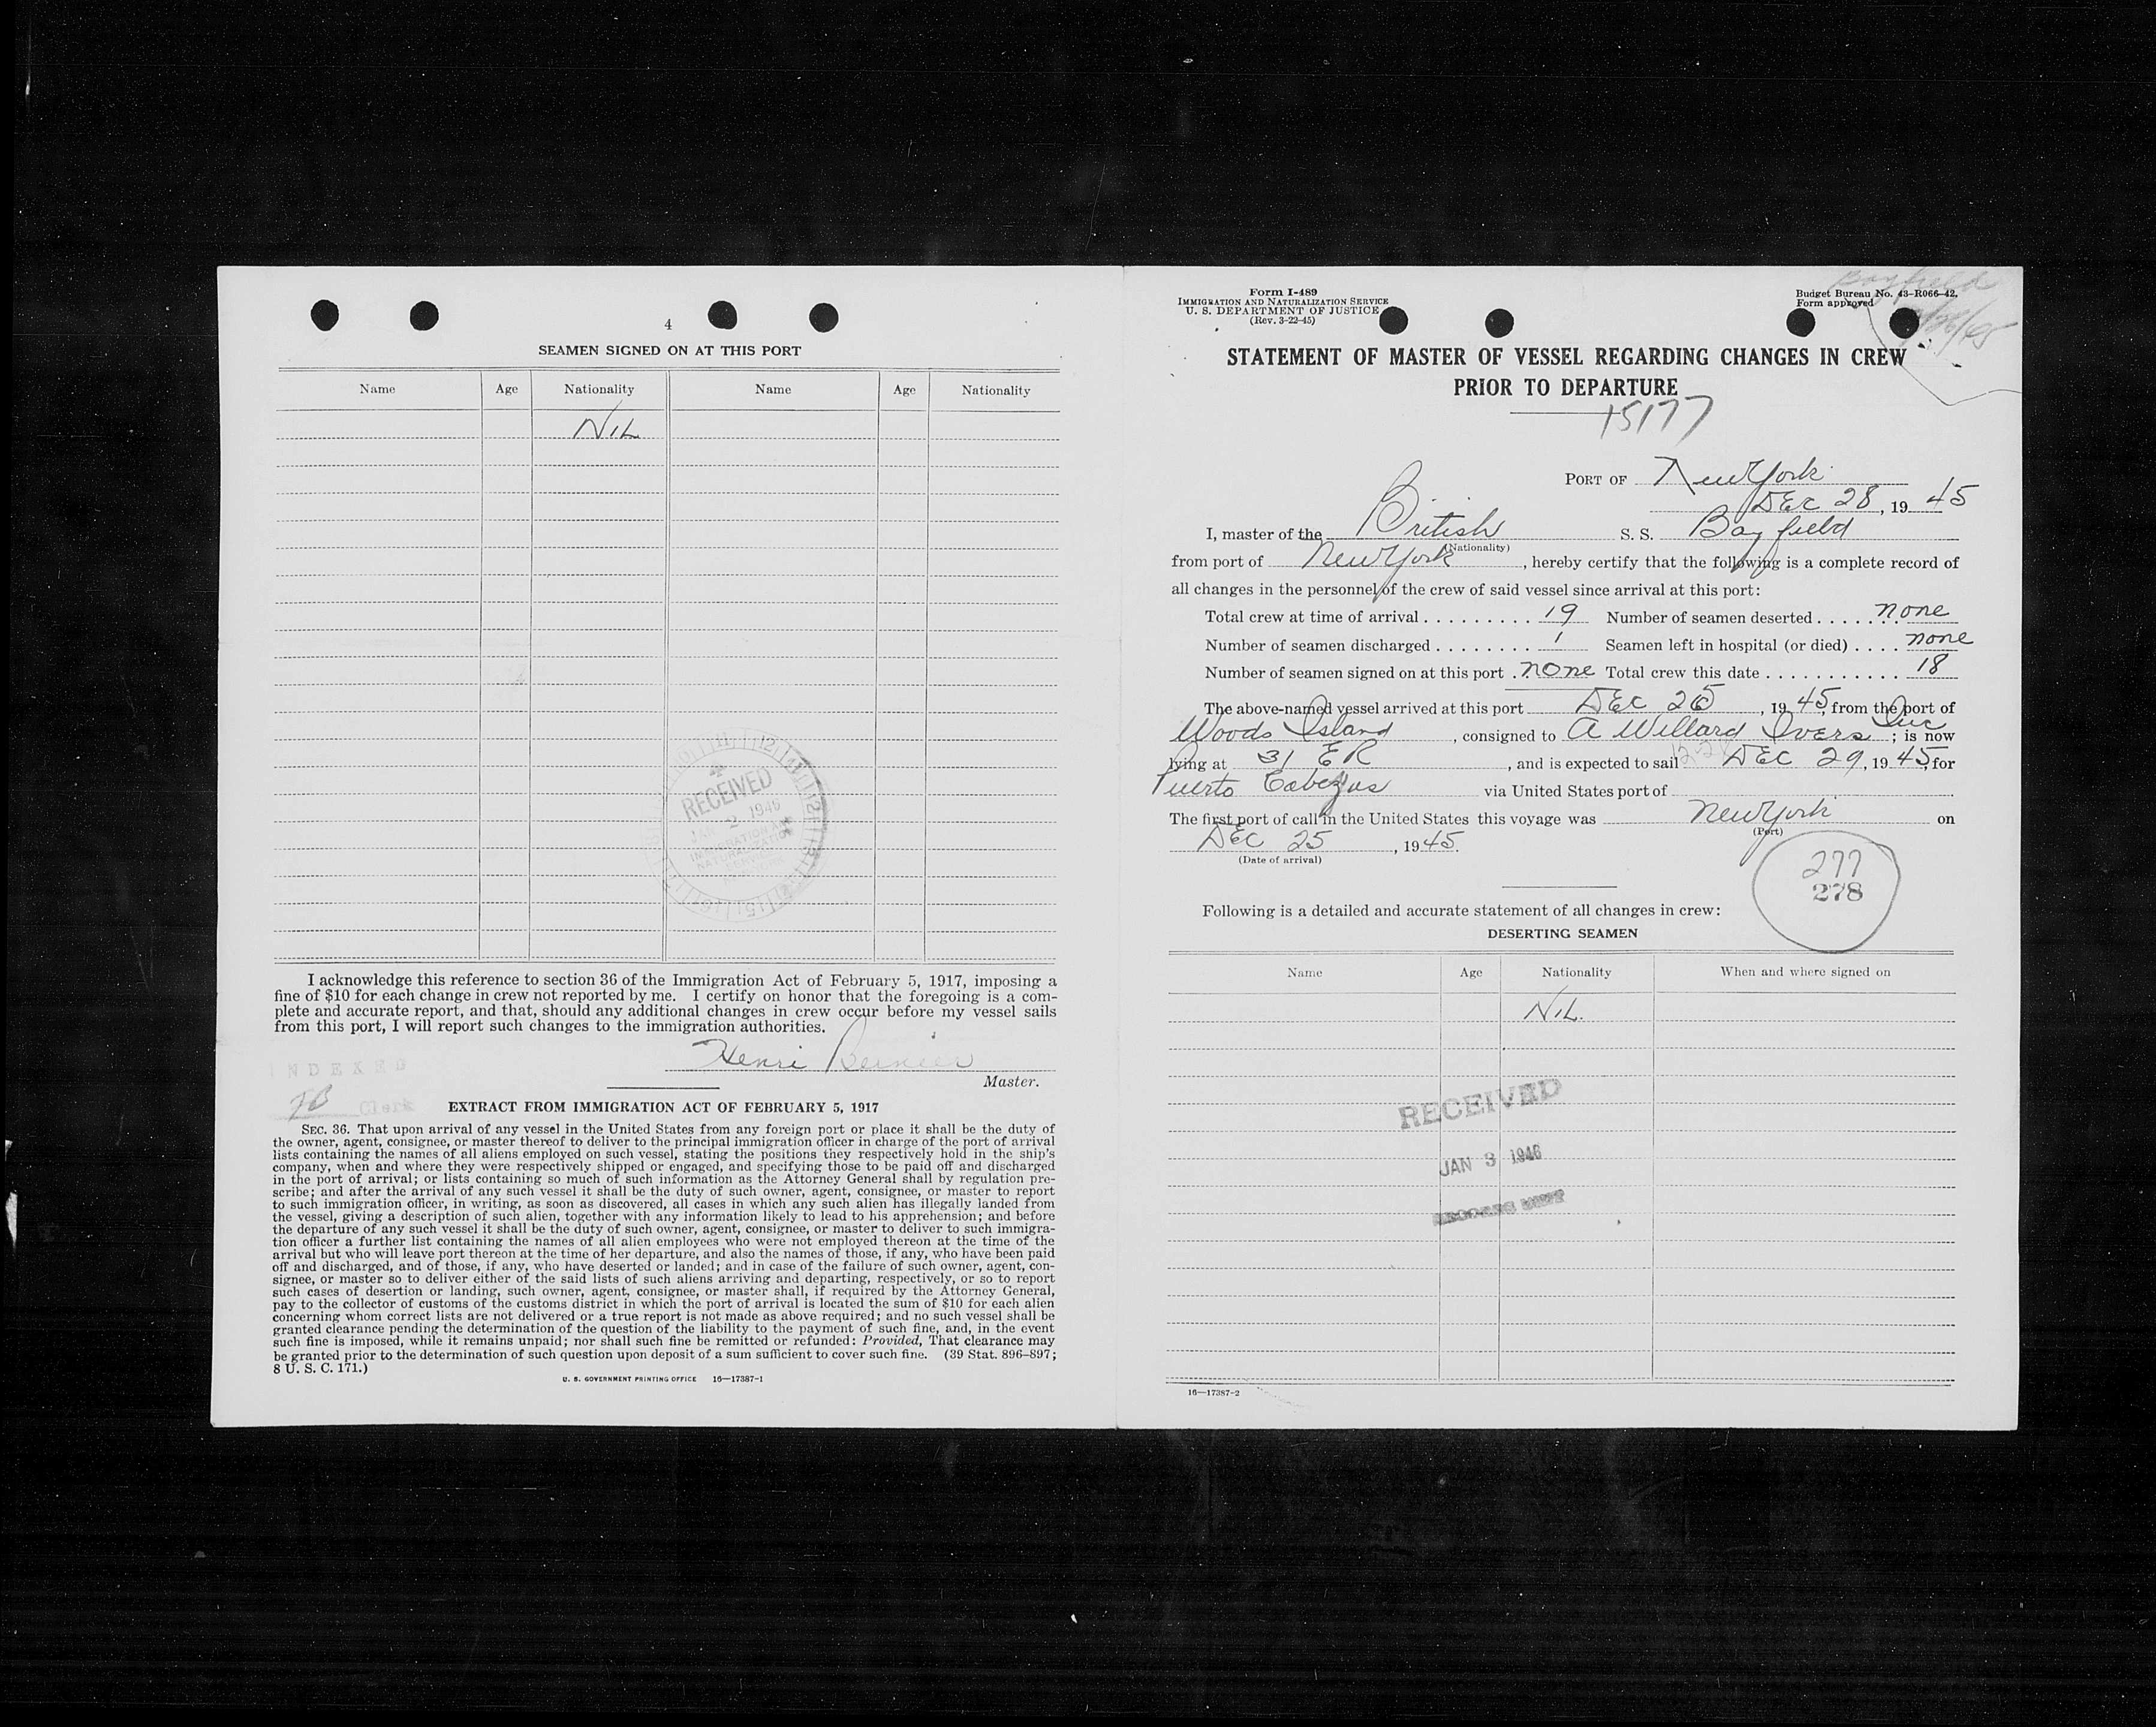 4
SEAMEN SIGNED ON AT THIS PORT
Name Age Nationality Name Age Nationality
NIL
RECEIVED
2 1946
I acknowledge this reference to section 36 of the Immigration Act of February 5, 1917, imposing a
fine of $10 for each change in crew not reported by me. I certify on honor that the foregoing is a com-
plete and accurate report, and that, should any additional changes in crew occur before my vessel sails
from this port, I will report such changes to the immigration authorities.
Henri Bernier
Master.
INDEXED
Clerk
EXTRACT FROM IMMIGRATION ACT OF FEBRUARY 5, 1917
SEC. 36. That upon arrival of any vessel in the United States from any foreign port or place it shall be the duty of
the owner, agent, consignee, or master thereof to deliver to the principal immigration officer in charge of the port of arrival
lists containing the names of all aliens employed on such vessel, stating the positions they respectively hold in the ship's
company, when and where they were respectively shipped or engaged, and specifying those to be paid off and discharged
in the port of arrival; or lists containing so much of such information as the Attorney General shall by regulation pre-
scribe; and after the arrival of any such vessel it shall be the duty of such owner, agent, consignee, or master to report
to such immigration officer, in writing, as soon as discovered, all cases in which any such alien has illegally landed from
the vessel, giving a description of such alien, together with any information likely to lead to his apprehension; and before
the departure of any such vessel it shall be the duty of such owner, agent, consignee, or master to deliver to such immigra-
tion officer a further list containing the names of all alien employees who were not employed thereon at the time of the
arrival but who will leave port thereon at the time of her departure, and also the names of those, if any, who have been paid
off and discharged, and of those, if any, who have deserted or landed; and in case of the failure of such owner, agent, con-
signee, or master so to deliver either of the said lists of such aliens arriving and departing, respectively, or so to report
such cases of desertion or landing, such owner, agent, consignee, or master shall, if required by the Attorney General,
pay to the collector of customs of the customs district in which the port of arrival is located the sum of $10 for each alien
concerning whom correct lists are not delivered or a true report is not made as above required; and no such vessel shall be
granted clearance pending the determination of the question of the liability to the payment of such fine, and, in the event
such fine is imposed, while it remains unpaid; nor shall such fine be remitted or refunded: Provided, That clearance may
be granted prior to the determination of such question upon deposit of a sum sufficient to cover such fine. (39 Stat. 896-897;
8 U. S. C. 171.)
U. S. GOVERNMENT PRINTING OFFICE 16—17387-1
Form I-489
IMMIGRATION AND NATURALIZATION SERVICE
U. S. DEPARTMENT OF JUSTICE
(Rev. 3-22-45)
Bayfield
Budget Bureau No. 43-R066-42.
Form approved
STATEMENT OF MASTER OF VESSEL REGARDING CHANGES IN CREW
PRIOR TO DEPARTURE
15177
PORT OF New York
DEC 28, 1945
I, master of the British S. S. Bayfield
(Nationality)
from port of New York, hereby certify that the following is a complete record of
all changes in the personnel of the crew of said vessel since arrival at this port:
Total crew at time of arrival 19 Number of seamen deserted none
Number of seamen discharged 1 Seamen left in hospital (or died) none
Number of seamen signed on at this port none Total crew this date 18
The above-named vessel arrived at this port DEC 25, 1945, from the port of
Woods Island, consigned to A Willard Ivers Inc; is now
lying at 31 ER, and is expected to sail DEC 29, 1945, for
Puerto Cabezas via United States port of
The first port of call in the United States this voyage was New York on
(Port)
DEC 25, 1945.
(Date of arrival)
277
278
Following is a detailed and accurate statement of all changes in crew:
DESERTING SEAMEN
Name Age Nationality When and where signed on
NIL.
RECEIVED
JAN 3 1946
16—17387-2